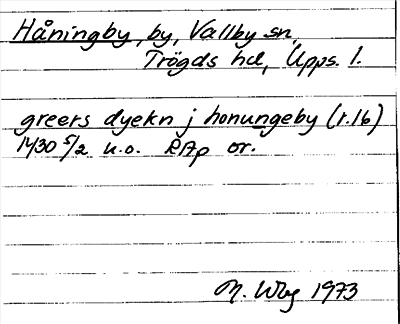 Håningby, by, Vallby sn,
Trögds hd, Upps. l.
greers dyekn j honungeby (r.16)
1430 5/2 u.o. RAp or.
M. Wbg 1973